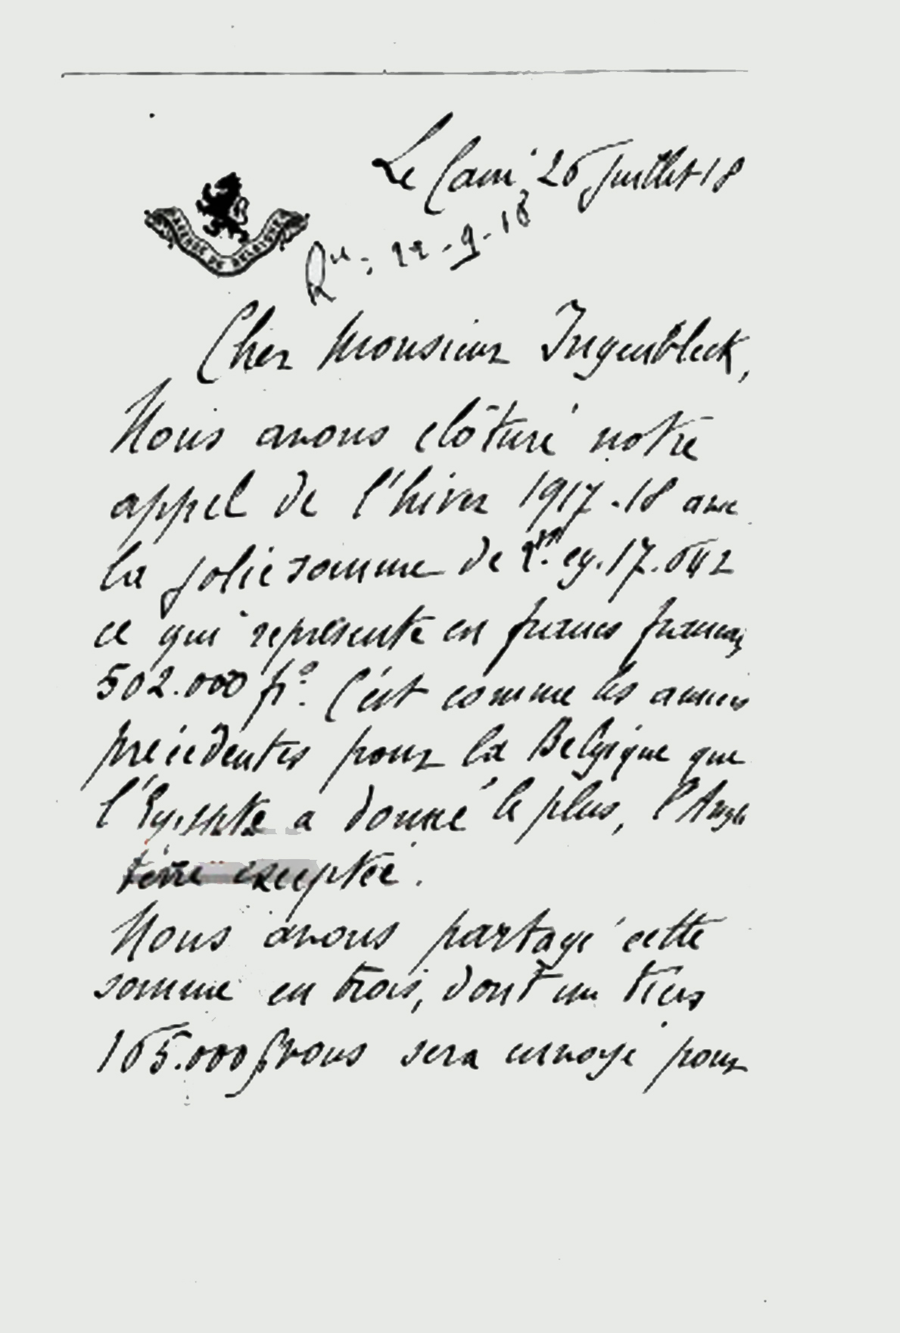 Le Caire, 26 Juillet 18
AGENCE DE BELGIQUE
Ru: 22-9-18
Cher Monsieur Ingenbleek,
Nous avons clôturé notre
appel de l'hiver 1917-18 avec
la jolie somme de eg. 17.642
ce qui représente en francs français
502.000 frs. C'est comme les années
précédentes pour la Belgique que
l'Egypte a donné le plus, l'Angle
terre exceptée.
Nous avons partagé cette
somme en trois, dont un tiers
165.000 f vous sera envoyé pour